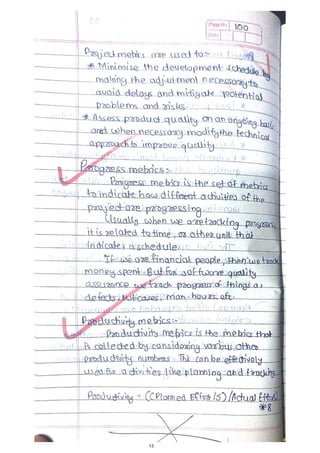 Page No. 100
Date
Project metrics are used to:-
* Minimise the development schedule by
making the adjustment necessary to
avoid delays and mitigate potential
problems and risks.
* Assess product quality on an ongoing basis
and when necessary modify the technical
approach to improve quality
Progress metrics:-
Progress metrics is the set of metrics
to indicate how different activities of the
project are progressing.
Usually when we are tracking progress,
it is related to time, or other unit that
indicates a schedule.
If we are financial people, then we track
money spent. But for software quality
assurance we track progress of things as
defects, test cases, man-hours etc.
Productivity metrics:-
Productivity metrics is the metrics that
is collected by considering various other
productivity numbers. This can be effectively
used for activities like planning and tracking.
Productivity = (CPlanned Effort/5)/Actual Effort
*8
13